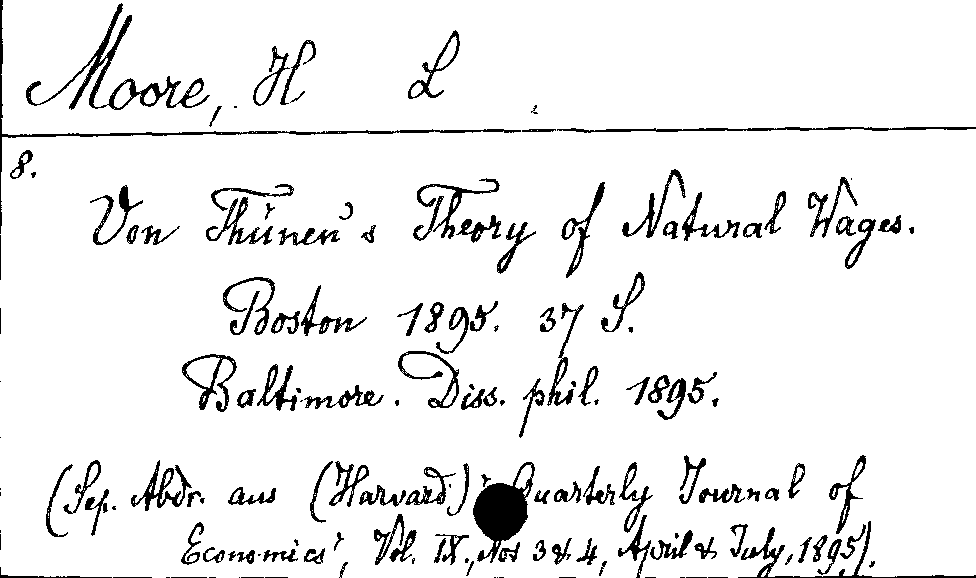 Moore, H L
8.
Von Thünen's Theory of Natural Wages.
Boston 1895. 37 S.
Baltimore. Diss. phil. 1895.
(Sep. Abdr. aus (Harvard) 'Quarterly Journal of
Economics', Vol. IX., Nos 3 & 4, April & July, 1895).